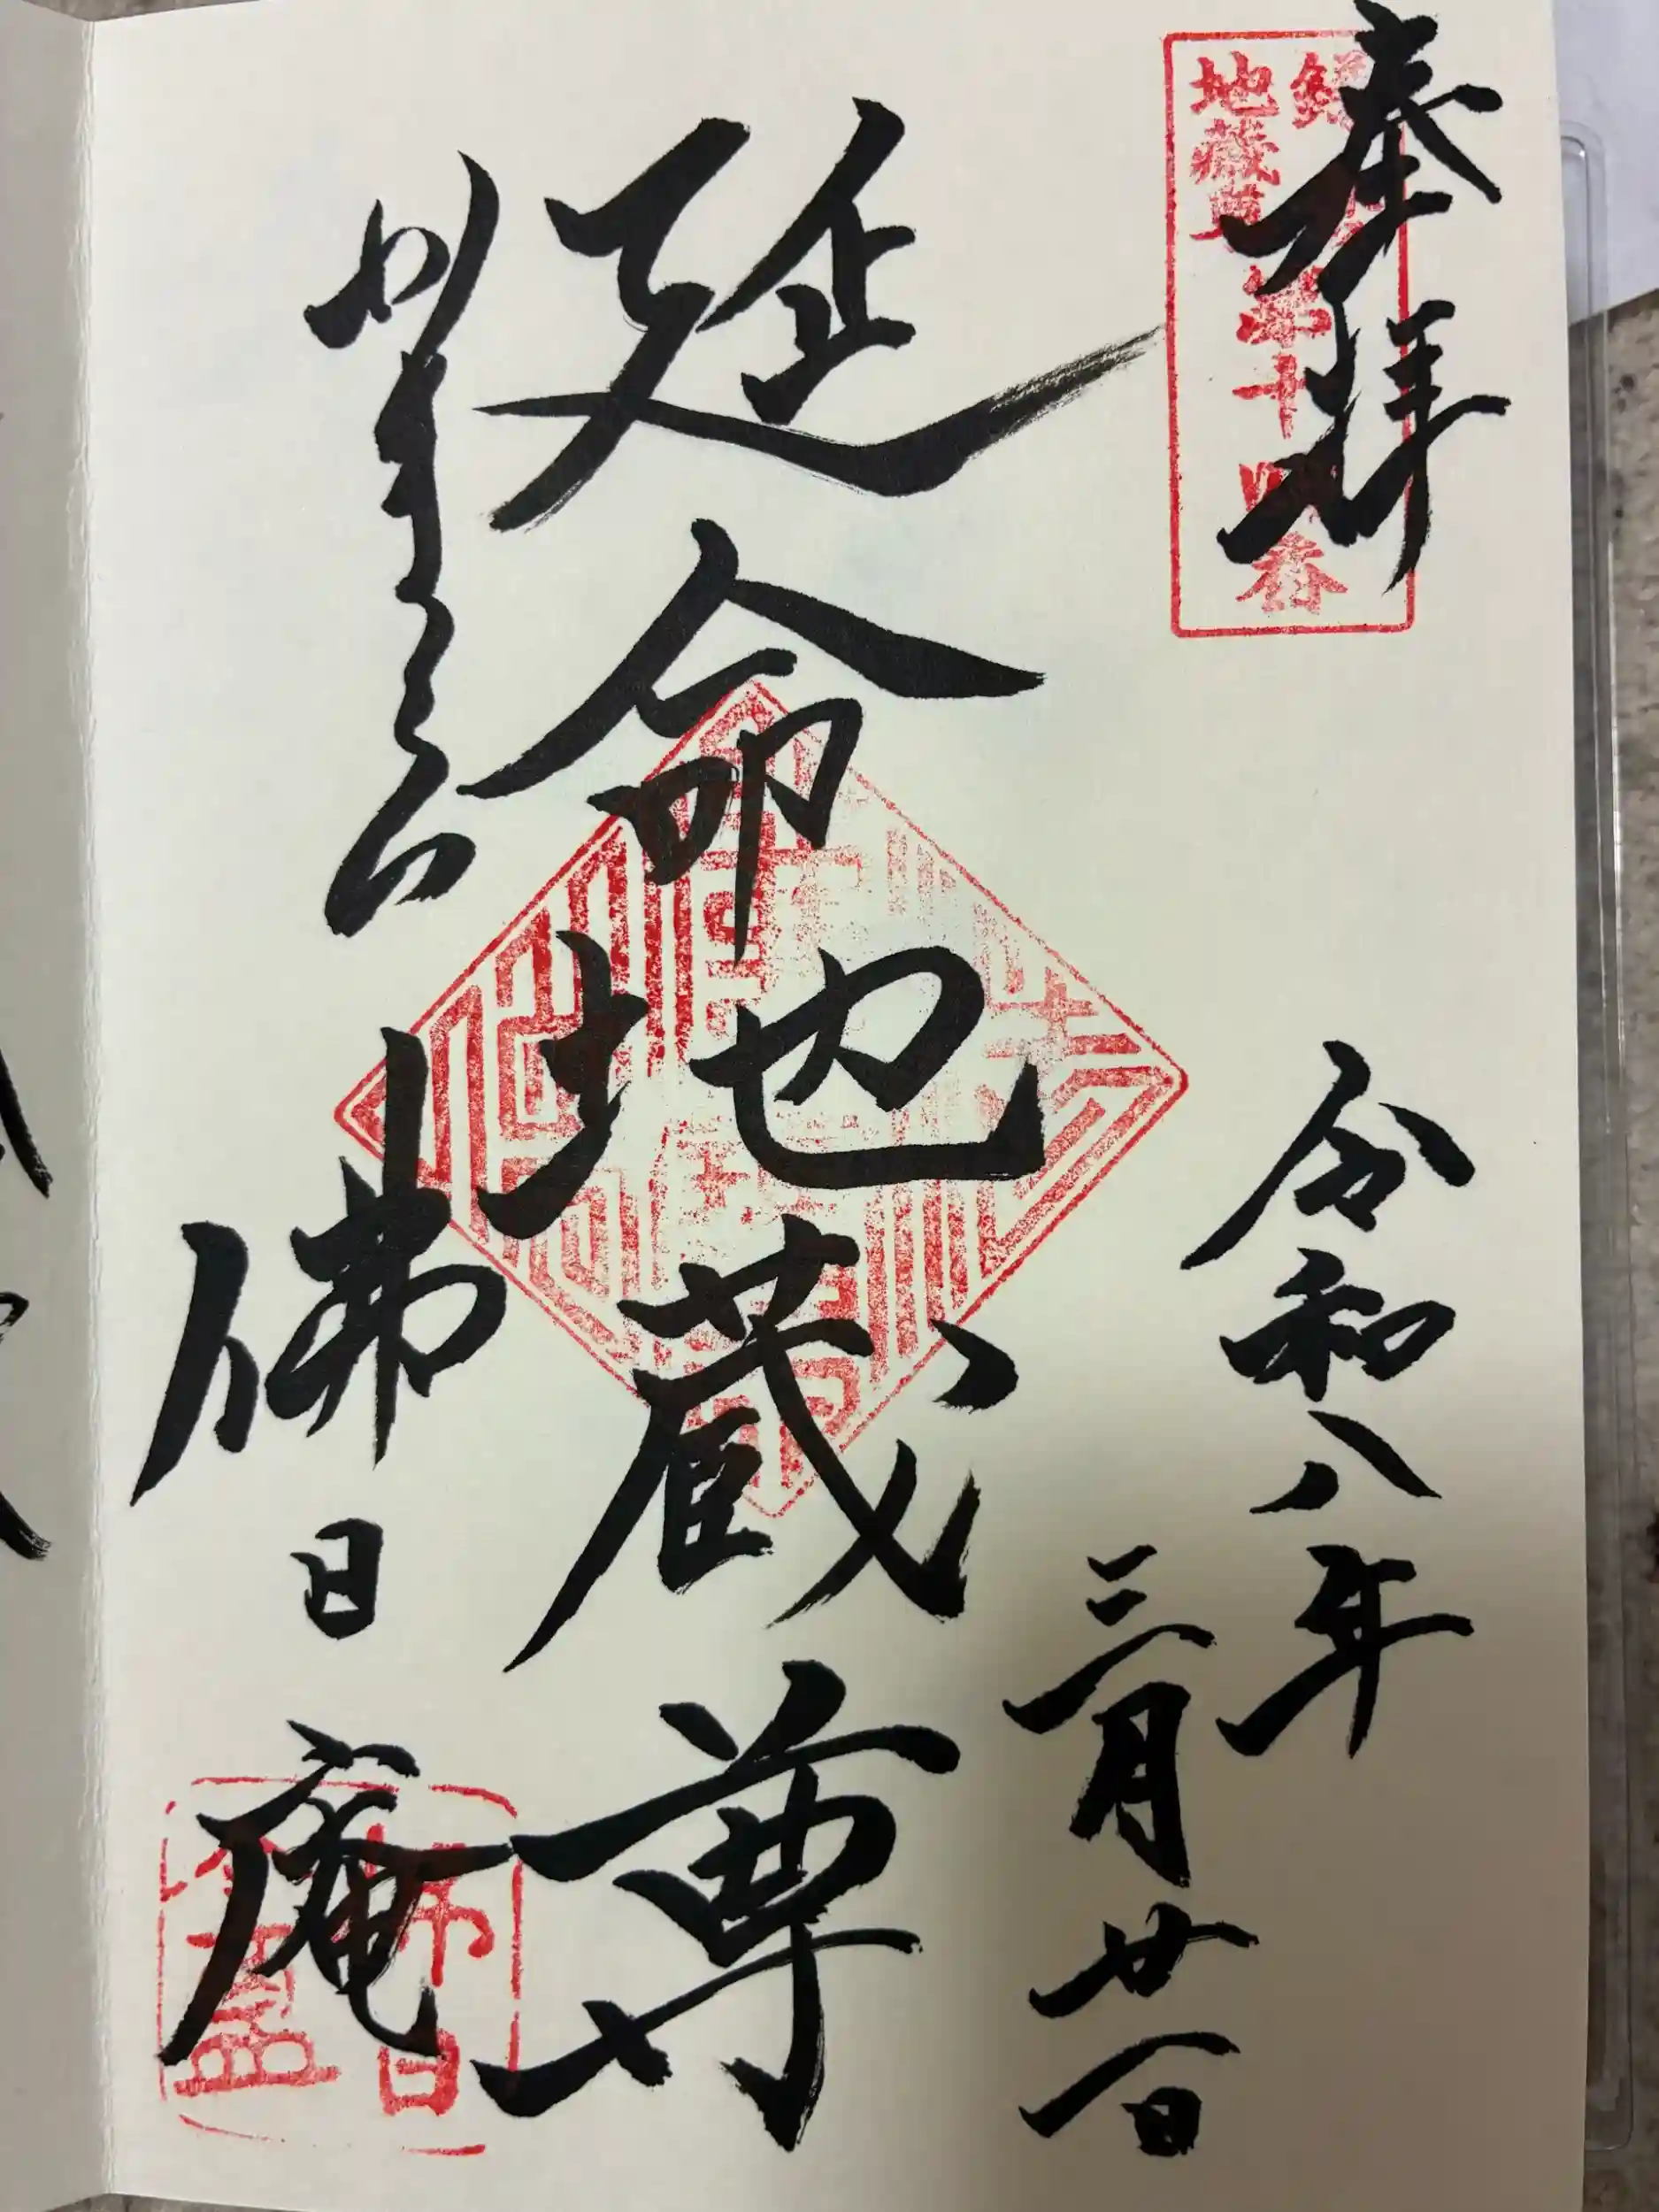 奉拝
鎌倉
地藏尊
第十四番
令和八年
三月廿一日
延命地蔵尊
かまくら
佛日庵